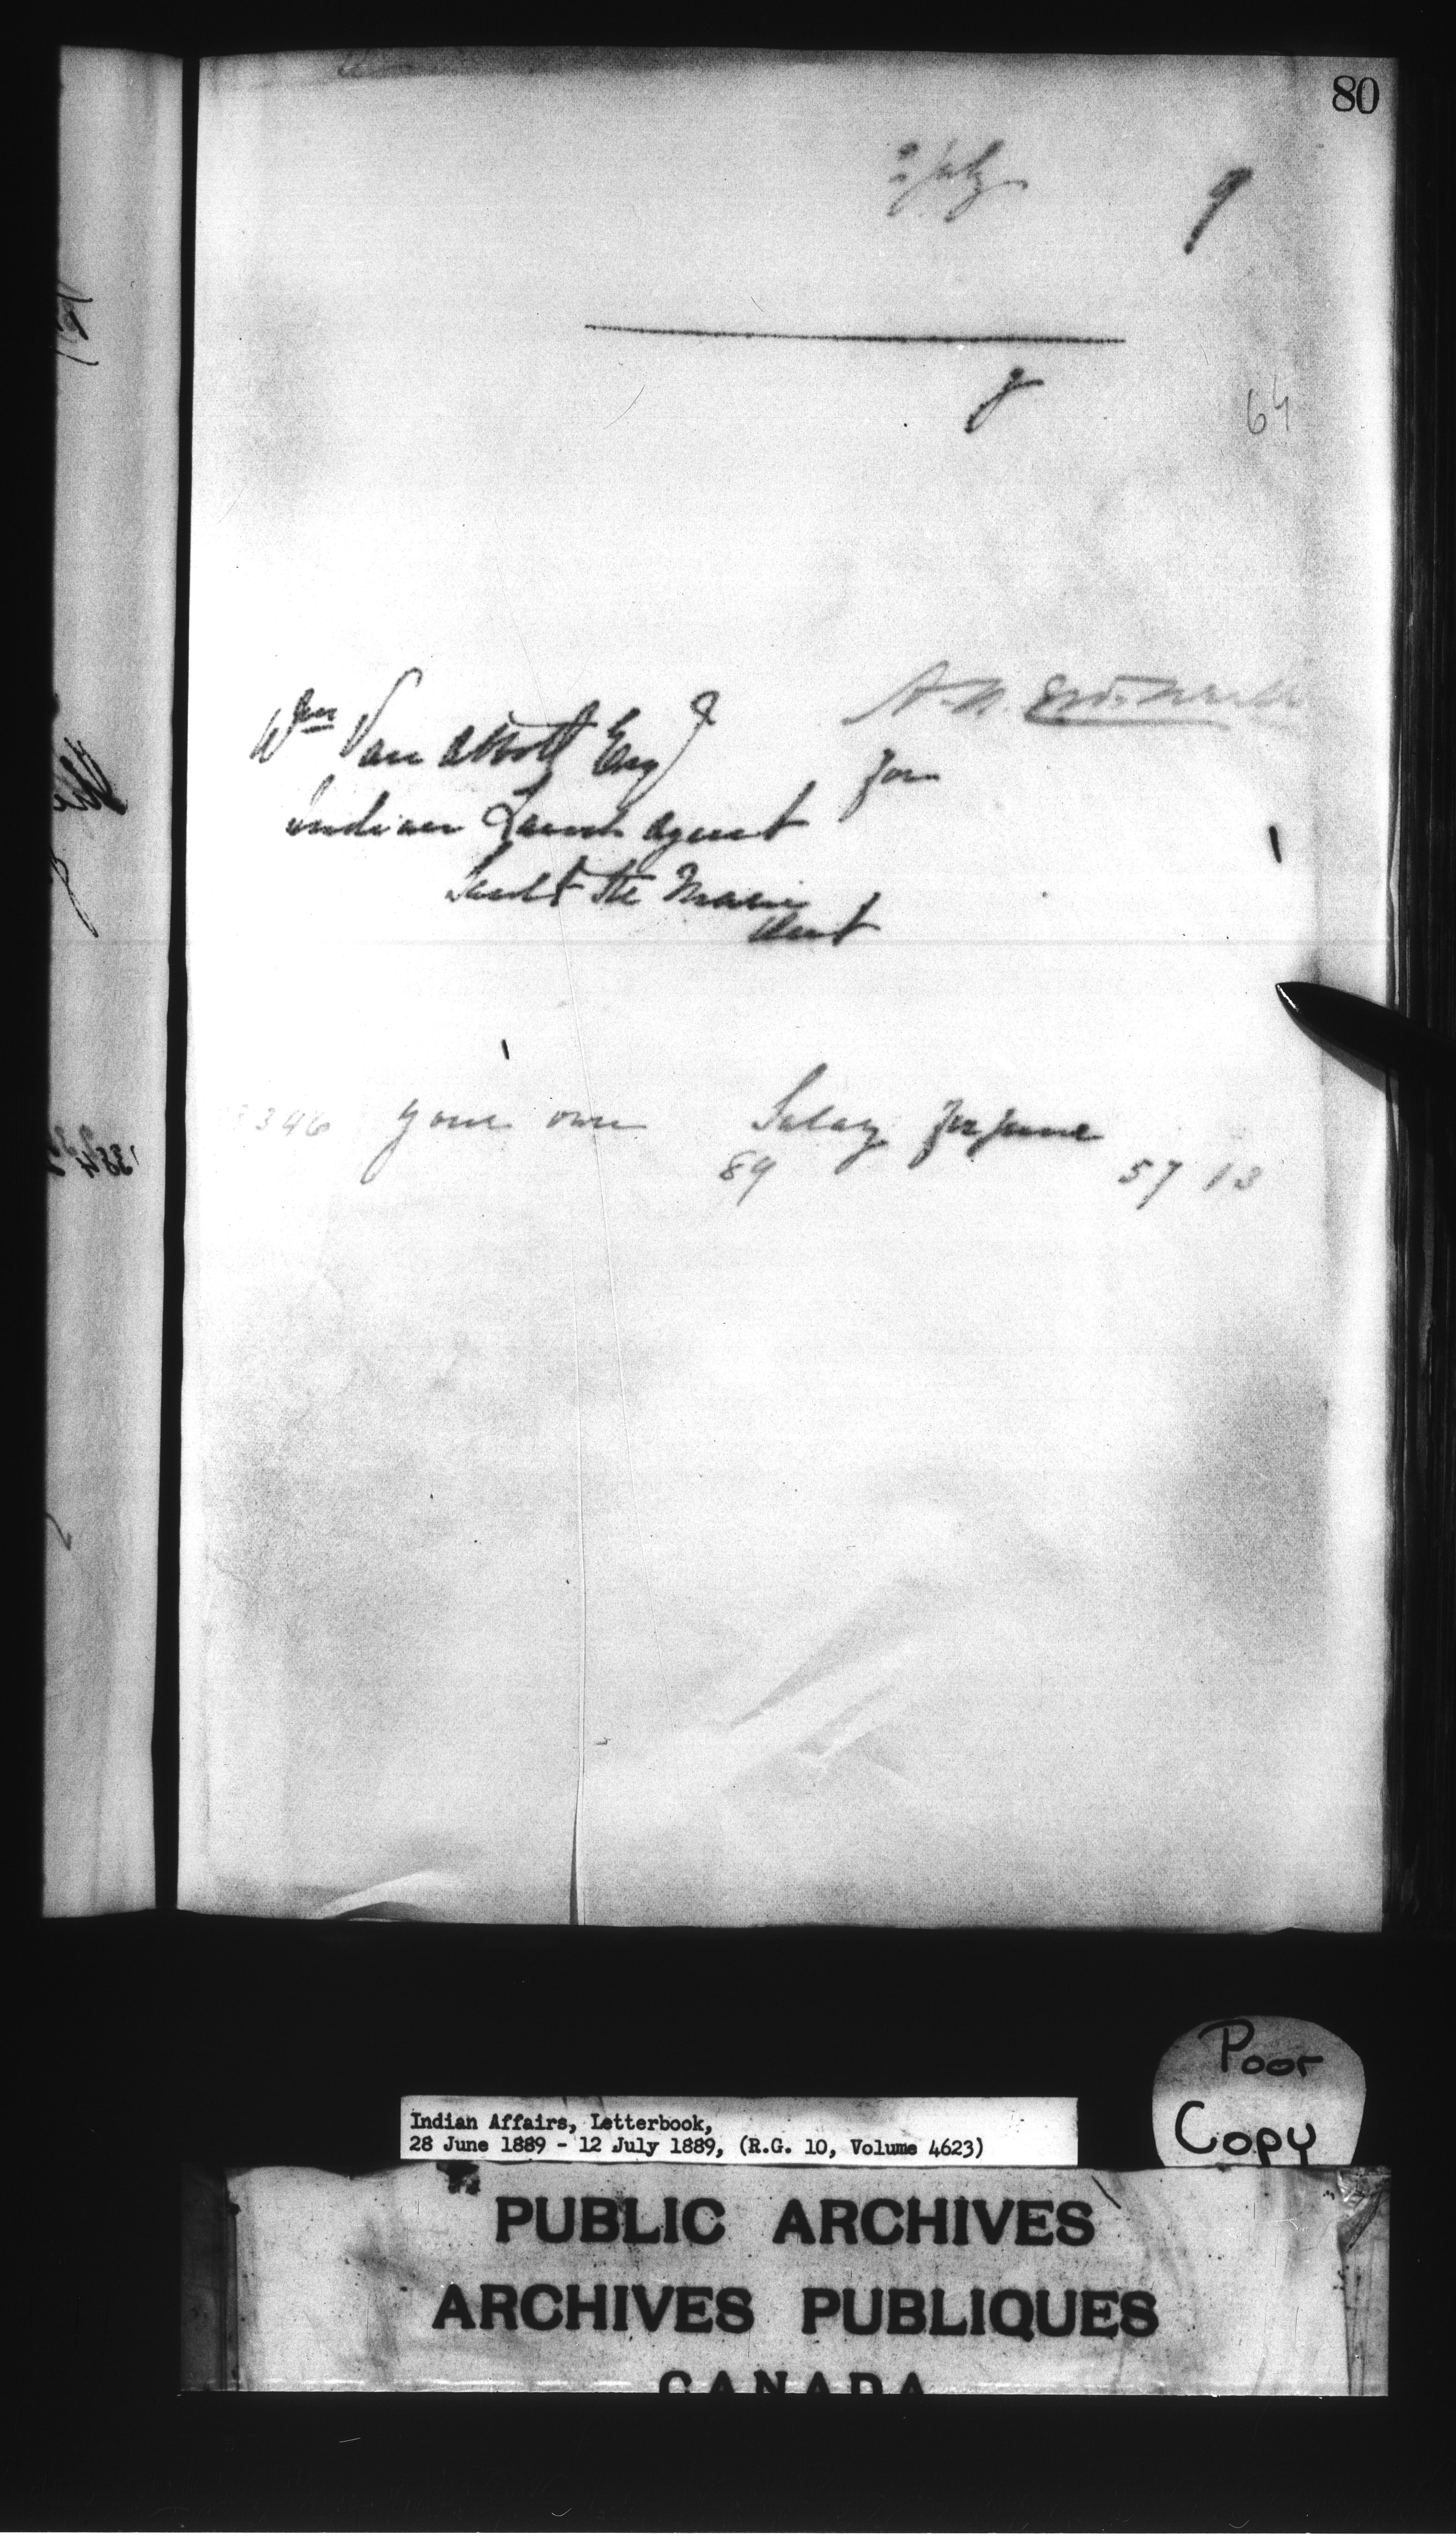 80
2 July
9
64
Wm Van Abbott Esq
for
Indian Land Agent
Sault Ste Marie
Ont
3346 your own Salary for June
89 57 13
Poor
Copy
Indian Affairs, Letterbook,
28 June 1889 - 12 July 1889, (R.G. 10, Volume 4623)
PUBLIC ARCHIVES
ARCHIVES PUBLIQUES
CANADA